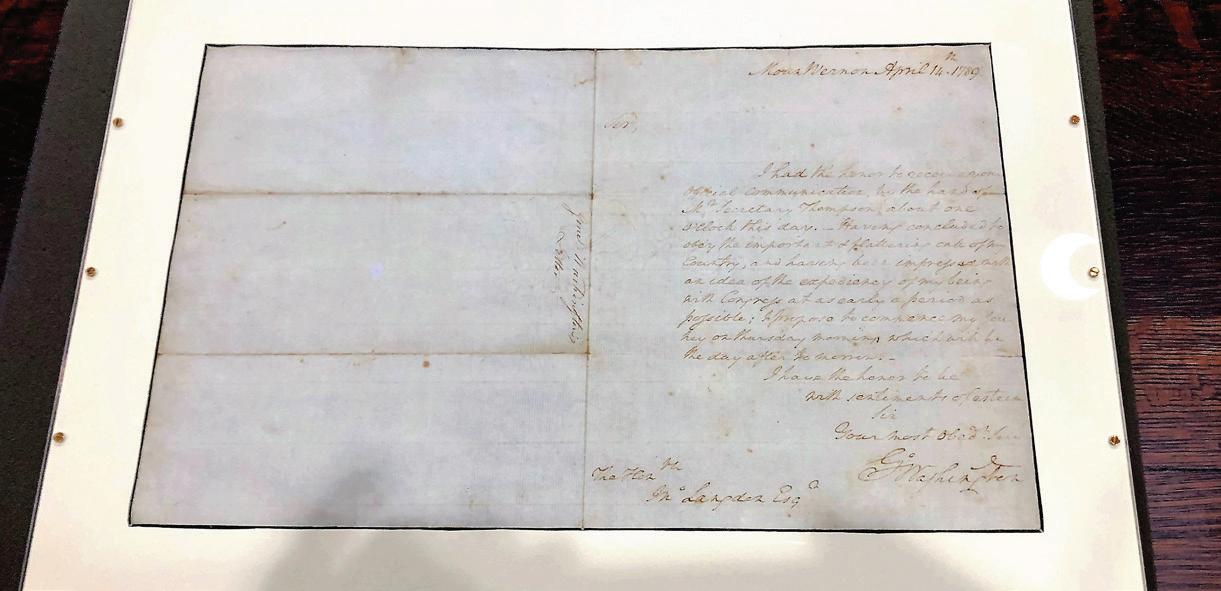 Mount Vernon April 14th 1789
Sir,
I had the honor to receive your
Official communication, by the hand of
Mr. Secretary Thompson, about one
o'clock this day. — Having concluded to
obey the important & flattering call of my
Country, and having been impressed with
an idea of the expediency of my being
with Congress at as early a period as
possible; I propose to commence my jour-
ney on thursday morning which will be
the day after to morrow. —
I have the honor to be
with sentiments of esteem
Sir
Your most Obedt. Ser
Go Washington
The Honble
Jno Langdon Esqr
Genl Washington's